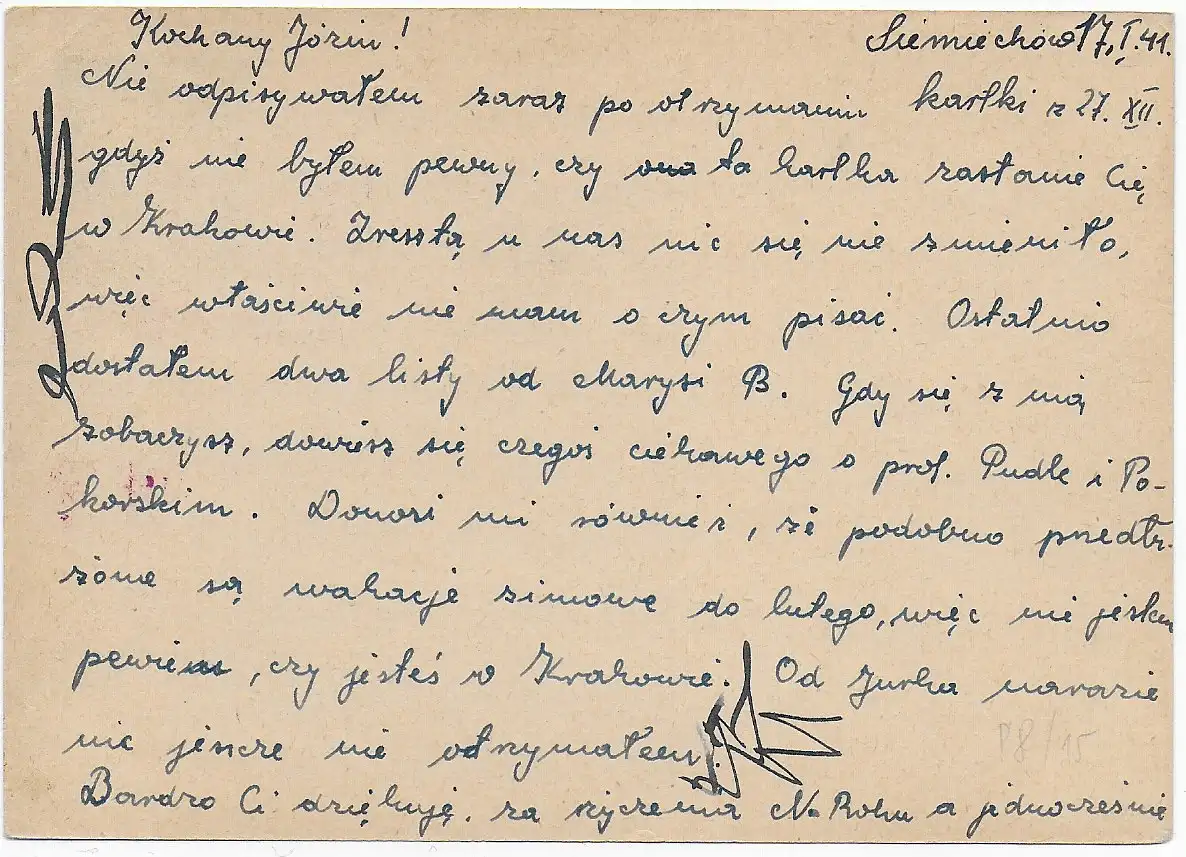 Kochany Józiu! Siemiechów 17.I.41.
Nie odpisywałem zaraz po otrzymaniu kartki z 27. XII.
gdyż nie byłem pewny, czy ta kartka zastanie Cię
w Krakowie. Zresztą u nas nic się nie zmieniło,
więc właściwie nie mam o czym pisać. Ostatnio
dostałem dwa listy od Marysi B. Gdy się z nią
zobaczysz, dowiesz się czegoś ciekawego o prof. Pudle i Po-
korskim. Donosi mi również, że podobno przedłu-
żone są wakacje zimowe do lutego, więc nie jestem
pewien, czy jesteś w Krakowie. Od Jurka narazie
nic jeszcze nie otrzymałem.
Bardzo Ci dziękuję za życzenia N. Roku a jednocześnie
78/15